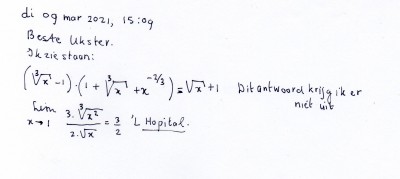 di 09 mar 2021, 15:09
Beste Ukster.
Ik zie staan:
(∛x - 1) · (1 + ∛x + x^-2/3) = √x + 1 Dit antwoord krijg ik er niet uit
lim x→1 3·∛x² / 2·√x = 3/2 'L Hopital.